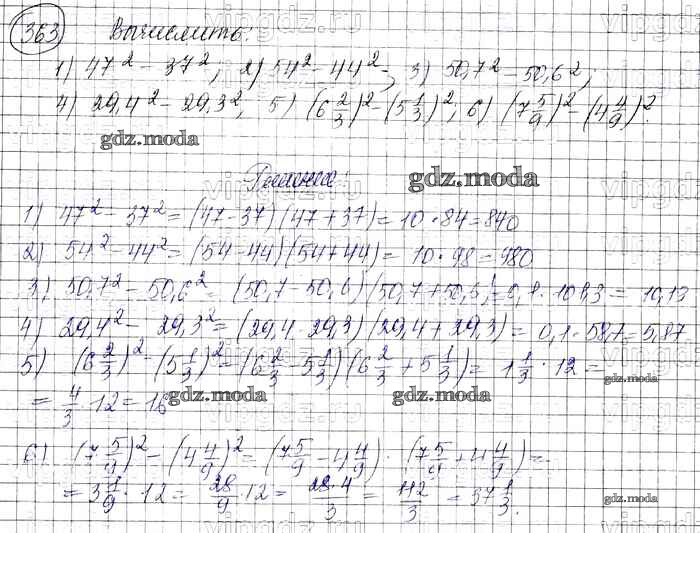 363 Вычислить:
1) 47² - 37²; 2) 54² - 44²; 3) 50,7² - 50,6²;
4) 29,4² - 29,3²; 5) (6 2/3)² - (5 1/3)²; 6) (7 5/9)² - (4 4/9)².
gdz.moda
gdz.moda
1) 47² - 37² = (47-37)(47+37) = 10·84 = 840
2) 54² - 44² = (54-44)(54+44) = 10·98 = 980
3) 50,7² - 50,6² = (50,7 - 50,6)(50,7+50,6) = 0,1 · 101,3 = 10,13
4) 29,4² - 29,3² = (29,4-29,3)(29,4+29,3) = 0,1·58,7 = 5,87
5) (6 2/3)² - (5 1/3)² = (6 2/3 - 5 1/3)(6 2/3 + 5 1/3) = 1 1/3 · 12 =
gdz.moda
= 4/3 · 12 = 16
gdz.moda
gdz.moda
6) (7 5/9)² - (4 4/9)² = (7 5/9 - 4 4/9) · (7 5/9 + 4 4/9) =
= 3 1/9 · 12 = 28/9 · 12 = 28·4/3 = 112/3 = 37 1/3.
gdz.moda
vipgdz.ru